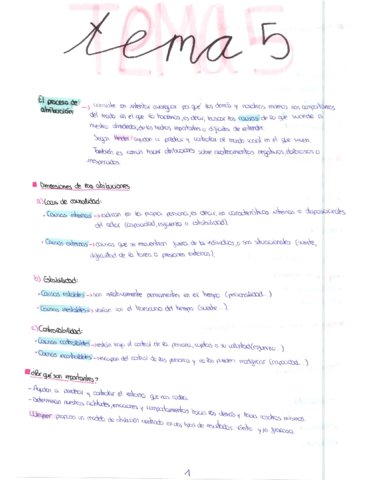 TEMA 5
tema 5
El proceso de atribución → consiste en intentar averiguar por qué los demás y nosotros mismos nos comportamos
del modo en el que lo hacemos, es decir, buscar las causas de lo que sucede a
nuestro alrededor, los hechos importantes o difíciles de entender.
Según Heider ayudan a predecir y controlar el mundo social en el que viven.
También es común hacer atribuciones sobre acontecimientos negativos, dolorosos o
inesperados.
Dimensiones de las atribuciones
a) Locus de causalidad:
- Causas internas → radican en la propia persona, es decir, en características internas o disposicionales
del actor (capacidad, esfuerzo o
- Causas externas → causas que se encuentran fuera de los individuos, o son situacionales (suerte,
dificultad de la tarea o presiones externas).
b) Estabilidad:
- Causas estables → son relativamente permanentes en el tiempo (personalidad...)
- Causas inestables → varían con el transcurso del tiempo (suerte...)
c) Controlabilidad:
- Causas controlables → están bajo el control de la persona, sujetas a su voluntad (esfuerzo...)
- Causas incontrolables → escapan del control de las personas y no las pueden modificar (capacidad...)
¿Por qué son importantes?
- Ayudan a predecir y controlar el entorno que nos rodea.
- Determinan nuestros sentimientos, emociones y comportamientos hacia los demás y hacia nosotros mismos.
Weiner: propuso un modelo de atribución centrado en dos tipos de resultados: éxito y/o fracaso.
1